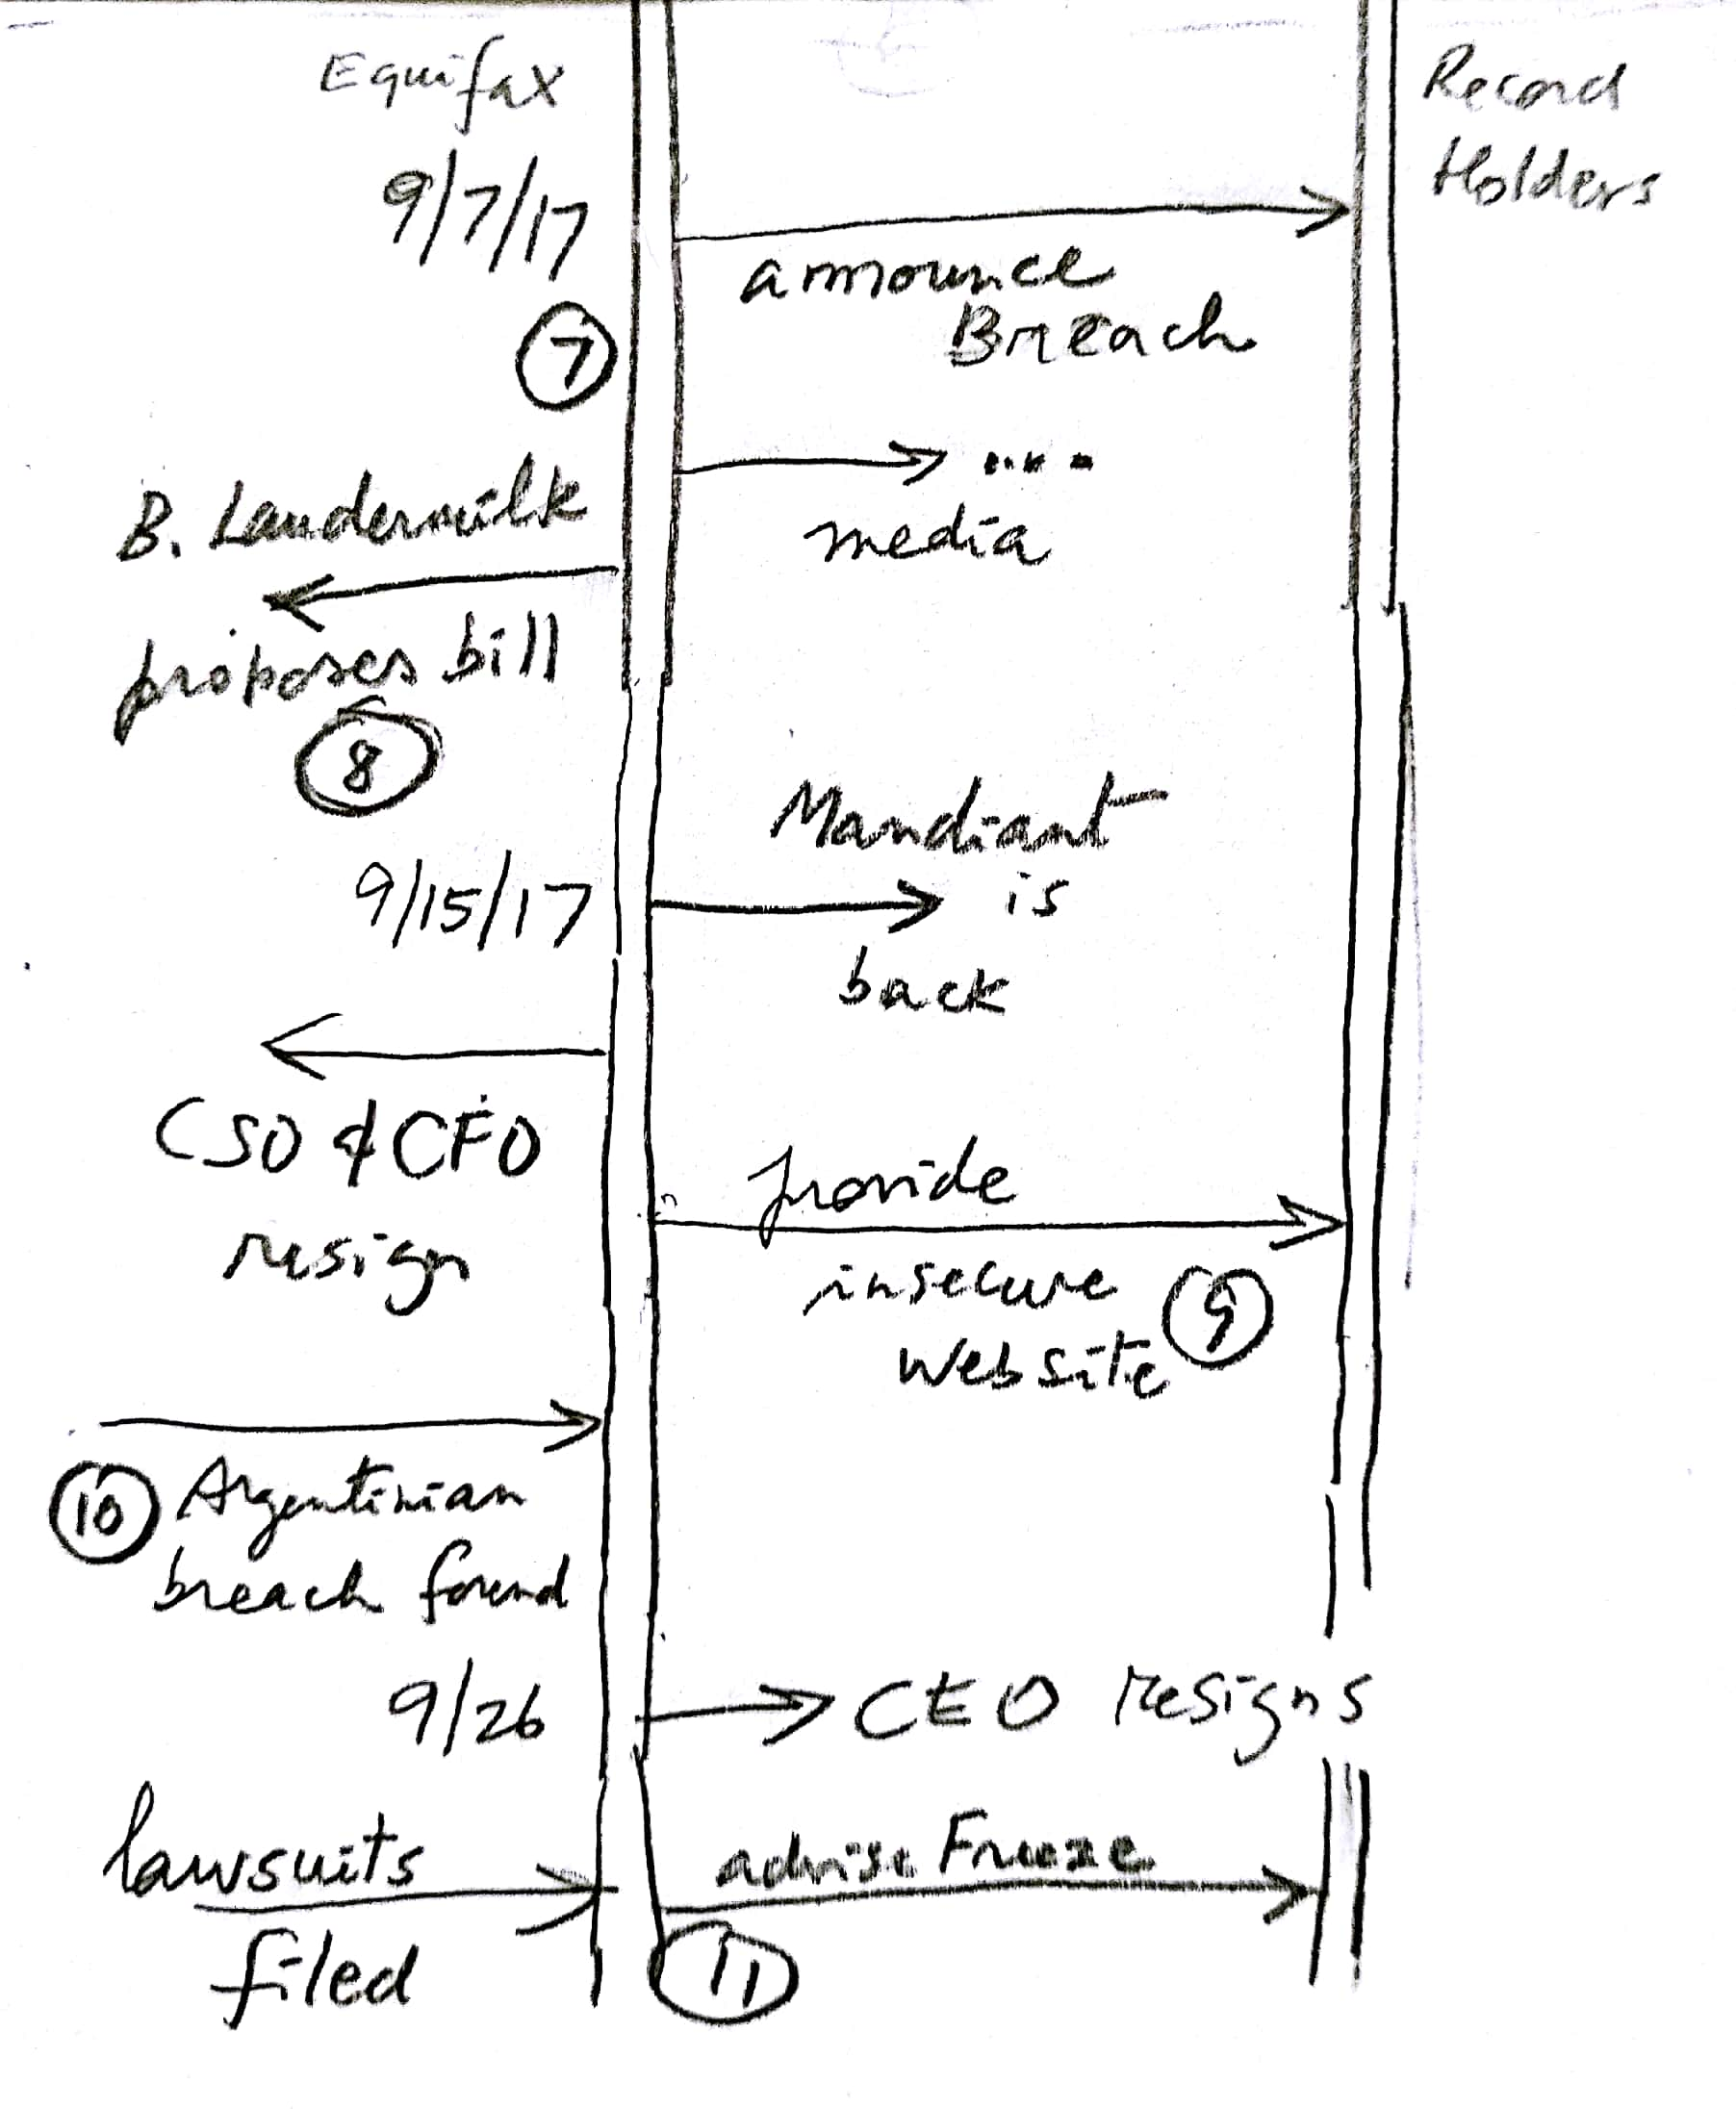 Equifax
Record
Holders
9/7/17
announce
Breach
7
....
media
B. Laudermilk
proposes bill
8
Mandiant
is
back
9/15/17
CSO & CFO
resign
provide
insecure
website
9
10 Argentinian
breach found
9/26
CEO resigns
lawsuits
filed
advise Freeze
11